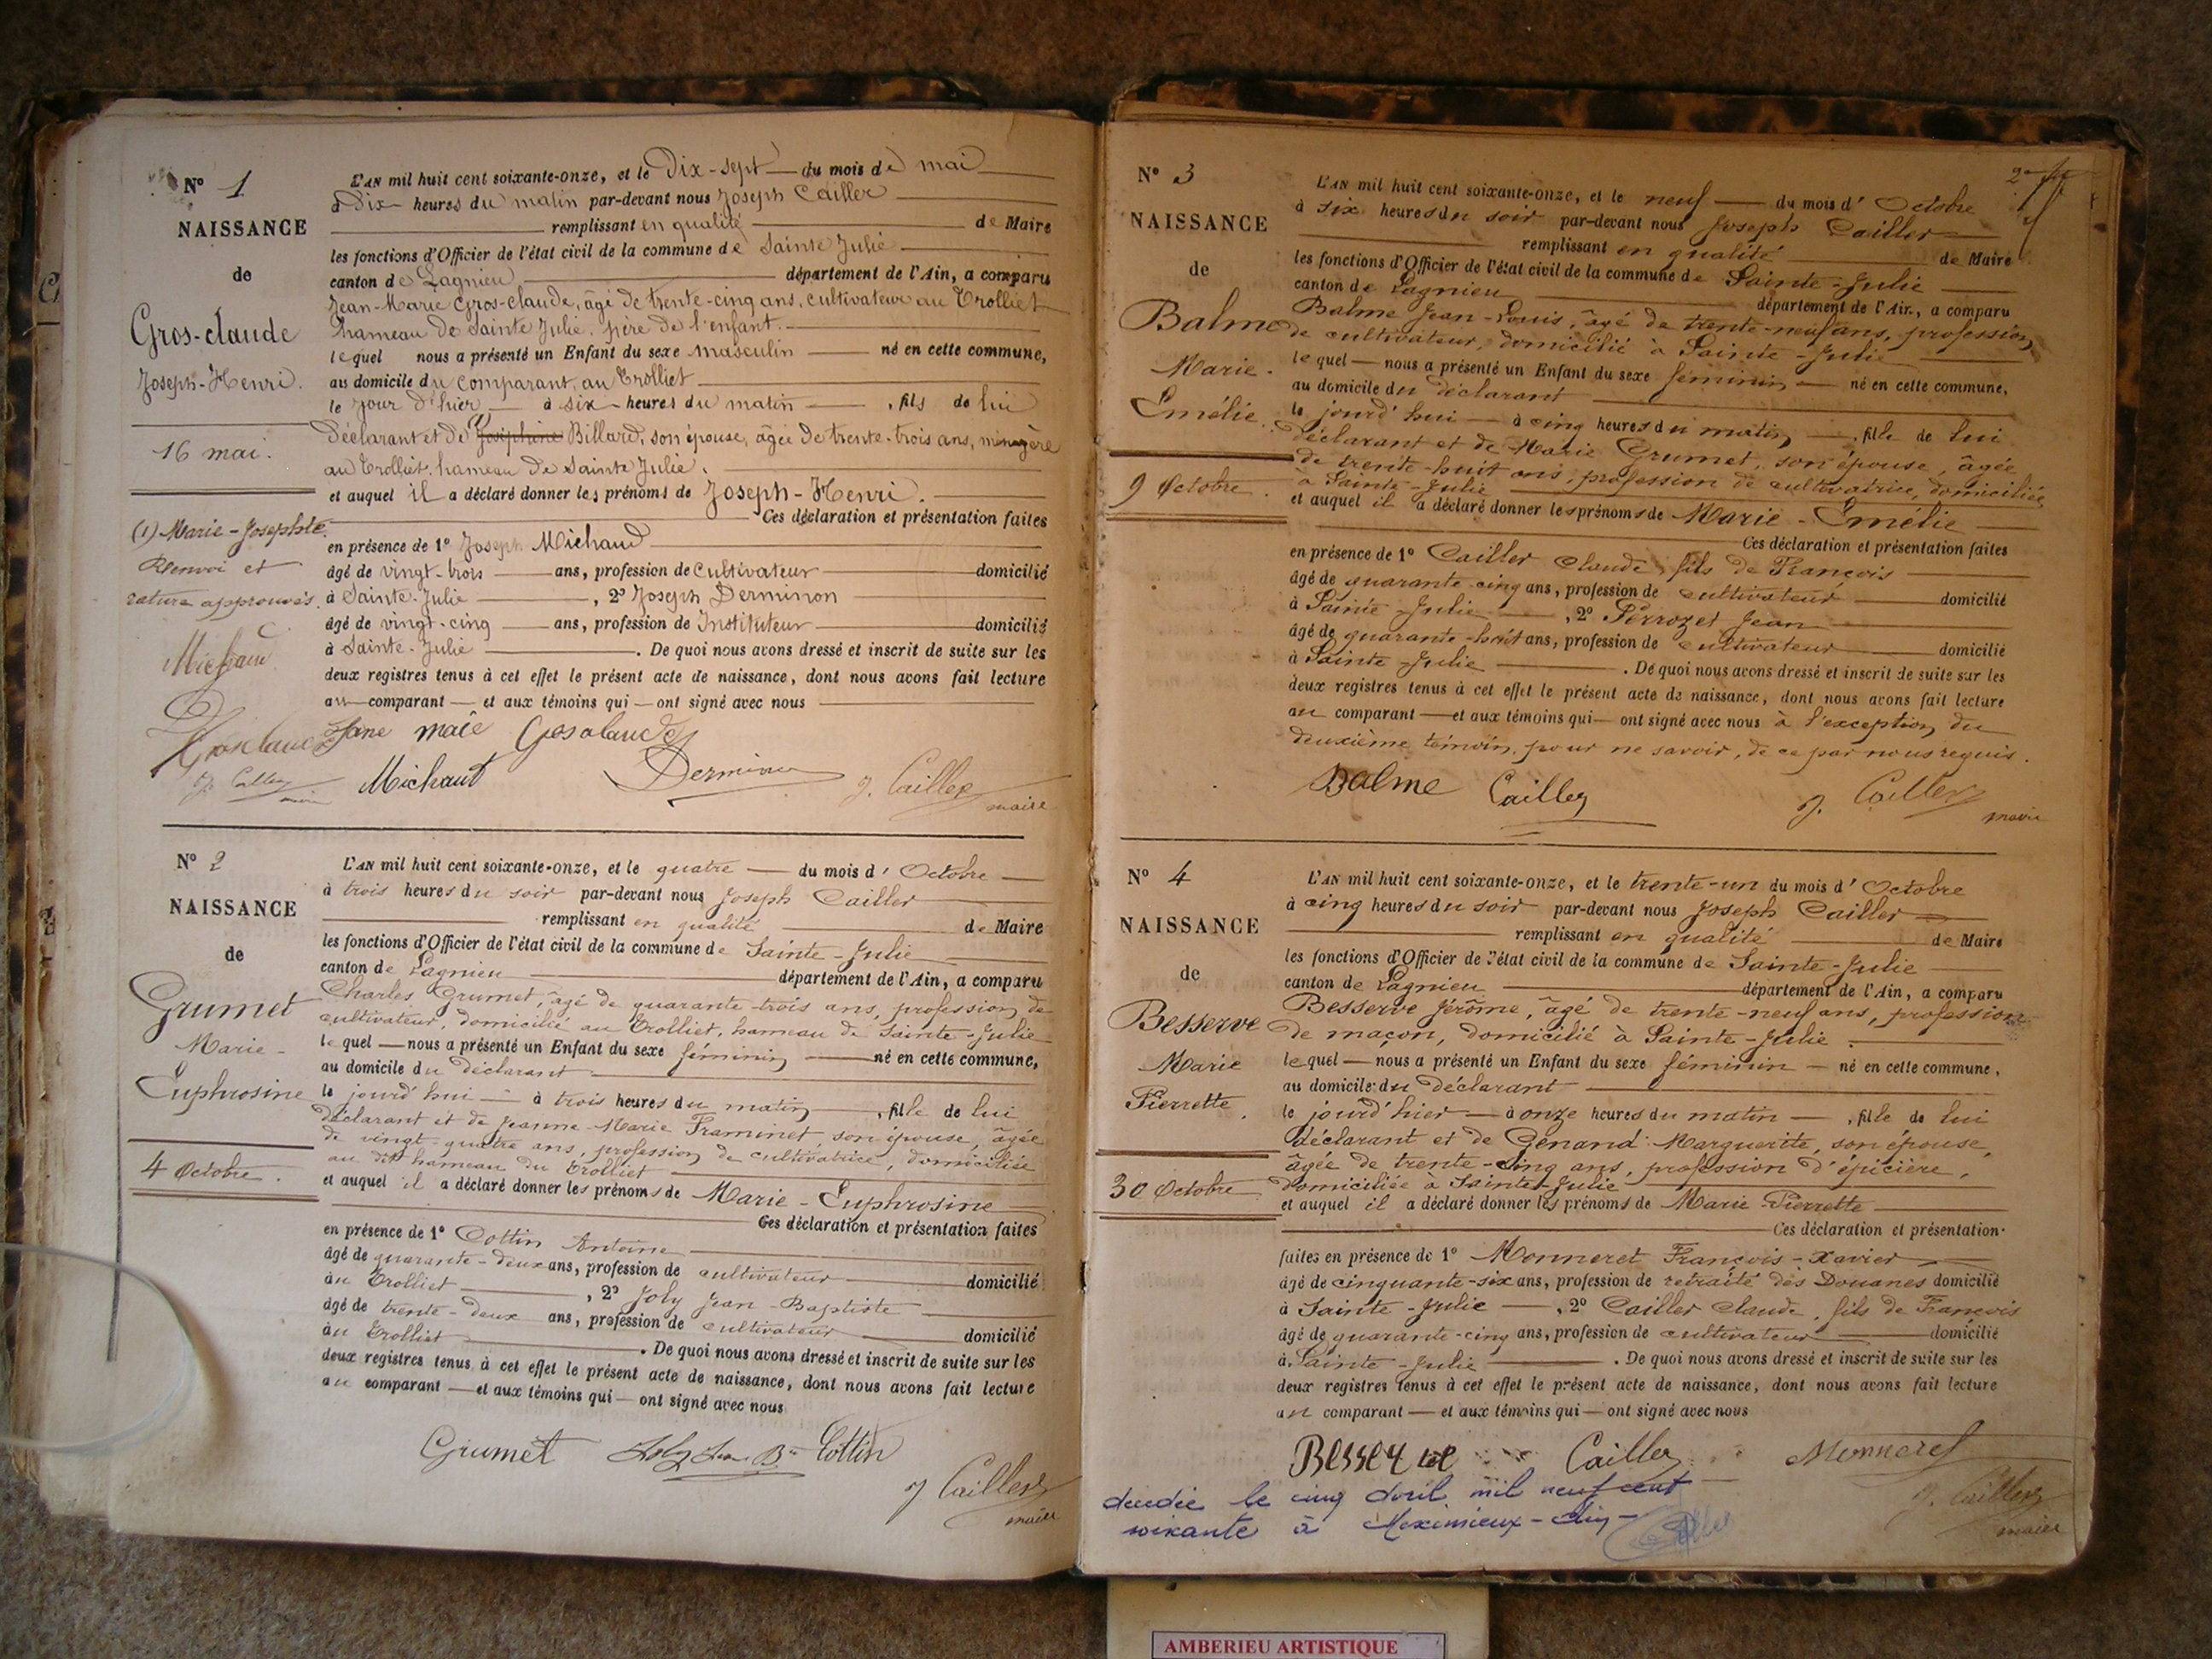 N° 1
NAISSANCE
de
Gros-claude
Joseph-Henri.
16 mai.
(1) Marie-Josephte.
Renvoi et
rature approuvés.
Michaud
Grosclaude
J. Cailler
maire
L'AN mil huit cent soixante-onze, et le Dix-sept du mois de mai
à Dix heures du matin par-devant nous Joseph Cailler
remplissant en qualité de Maire
les fonctions d'Officier de l'état civil de la commune de Sainte Julie
canton de Lagnieu département de l'Ain, a comparu
Jean-Marie Gros-claude, âgé de trente-cinq ans, cultivateur au Trolliet
hameau de Sainte Julie, père de l'enfant.
lequel nous a présenté un Enfant du sexe masculin né en cette commune,
au domicile du comparant, au Trolliet
le jour d'hier à six heures du matin, fils de lui
déclarant et de Joséphine Billard, son épouse, âgée de trente-trois ans, ménagère
au Trolliet, hameau de Sainte Julie.
et auquel il a déclaré donner les prénoms de Joseph-Henri.
Ces déclaration et présentation faites
en présence de 1° Joseph Michaud
âgé de vingt-trois ans, profession de Cultivateur domicilié
à Sainte-Julie, 2° Joseph Derminon
âgé de vingt-cinq ans, profession de Instituteur domicilié
à Sainte-Julie. De quoi nous avons dressé et inscrit de suite sur les
deux registres tenus à cet effet le présent acte de naissance, dont nous avons fait lecture
au comparant et aux témoins qui ont signé avec nous
Jane maie Gosolaude
Michaut Derminon J. Cailler
maire
N° 2
NAISSANCE
de
Grumet
Marie-
Euphrosine
4 Octobre.
L'AN mil huit cent soixante-onze, et le quatre du mois d'Octobre
à trois heures du soir par-devant nous Joseph Cailler
remplissant en qualité de Maire
les fonctions d'Officier de l'état civil de la commune de Sainte-Julie
canton de Lagnieu département de l'Ain, a comparu
Charles Grumet, âgé de quarante-trois ans, profession de
cultivateur, domicilié au Trolliet, hameau de Sainte-Julie
lequel nous a présenté un Enfant du sexe féminin né en cette commune,
au domicile du déclarant
le jourd'hui à trois heures du matin, fille de lui
déclarant et de Jeanne-Marie Framinet, son épouse, âgée
de vingt-quatre ans, profession de cultivatrice, domiciliée
au dit hameau du Trolliet
et auquel il a déclaré donner les prénoms de Marie-Euphrosine
Ces déclaration et présentation faites
en présence de 1° Cottin Antoine
âgé de quarante-deux ans, profession de cultivateur domicilié
au Trolliet, 2° Joly Jean-Baptiste
âgé de trente-deux ans, profession de cultivateur domicilié
au Trolliet. De quoi nous avons dressé et inscrit de suite sur les
deux registres tenus à cet effet le présent acte de naissance, dont nous avons fait lecture
au comparant et aux témoins qui ont signé avec nous
Grumet Joly Jean Bte Cottin
J Cailler
maire
N° 3
NAISSANCE
de
Balme
Marie-
Emélie.
9 Octobre.
L'AN mil huit cent soixante-onze, et le neuf du mois d'Octobre
à six heures du soir par-devant nous Joseph Cailler
remplissant en qualité de Maire
les fonctions d'Officier de l'état civil de la commune de Sainte-Julie
canton de Lagnieu département de l'Ain, a comparu
Balme Jean-Louis, âgé de trente-neuf ans, profession
de cultivateur, domicilié à Sainte-Julie
lequel nous a présenté un Enfant du sexe féminin né en cette commune,
au domicile du déclarant
le jourd'hui à cinq heures du matin, fille de lui
déclarant et de Marie Grumet, son épouse, âgée
de trente-huit ans, profession de cultivatrice, domiciliée
à Sainte-Julie
et auquel il a déclaré donner les prénoms de Marie-Emélie
Ces déclaration et présentation faites
en présence de 1° Cailler Claude, fils de François
âgé de quarante-cinq ans, profession de cultivateur domicilié
à Sainte-Julie, 2° Perrozet Jean
âgé de quarante-huit ans, profession de cultivateur domicilié
à Sainte-Julie. De quoi nous avons dressé et inscrit de suite sur les
deux registres tenus à cet effet le présent acte de naissance, dont nous avons fait lecture
au comparant et aux témoins qui ont signé avec nous à l'exception du
deuxième témoin, pour ne savoir, de ce par nous requis.
Balme Cailler J. Cailler
maire
N° 4
NAISSANCE
de
Besserve
Marie
Pierrette.
30 Octobre
L'AN mil huit cent soixante-onze, et le trente-un du mois d'Octobre
à cinq heures du soir par-devant nous Joseph Cailler
remplissant en qualité de Maire
les fonctions d'Officier de l'état civil de la commune de Sainte-Julie
canton de Lagnieu département de l'Ain, a comparu
Besserve Jérôme, âgé de trente-neuf ans, profession
de maçon, domicilié à Sainte-Julie.
lequel nous a présenté un Enfant du sexe féminin né en cette commune,
au domicile du déclarant
le jourd'hier à onze heures du matin, fille de lui
déclarant et de Genand Marguerite, son épouse,
âgée de trente-cinq ans, profession d'épicière,
domiciliée à Sainte-Julie
et auquel il a déclaré donner les prénoms de Marie Pierrette
Ces déclaration et présentation
faites en présence de 1° Monneret François-Xavier
âgé de cinquante-six ans, profession de retraité des Douanes domicilié
à Sainte-Julie, 2° Cailler Claude, fils de François
âgé de quarante-cinq ans, profession de cultivateur domicilié
à Sainte-Julie. De quoi nous avons dressé et inscrit de suite sur les
deux registres tenus à cet effet le présent acte de naissance, dont nous avons fait lecture
au comparant et aux témoins qui ont signé avec nous
Besserve Cailler Monneret
J. Cailler
maire
décédée le cinq avril mil neuf cent
soixante à Meximieux-Ain-
AMBERIEU ARTISTIQUE